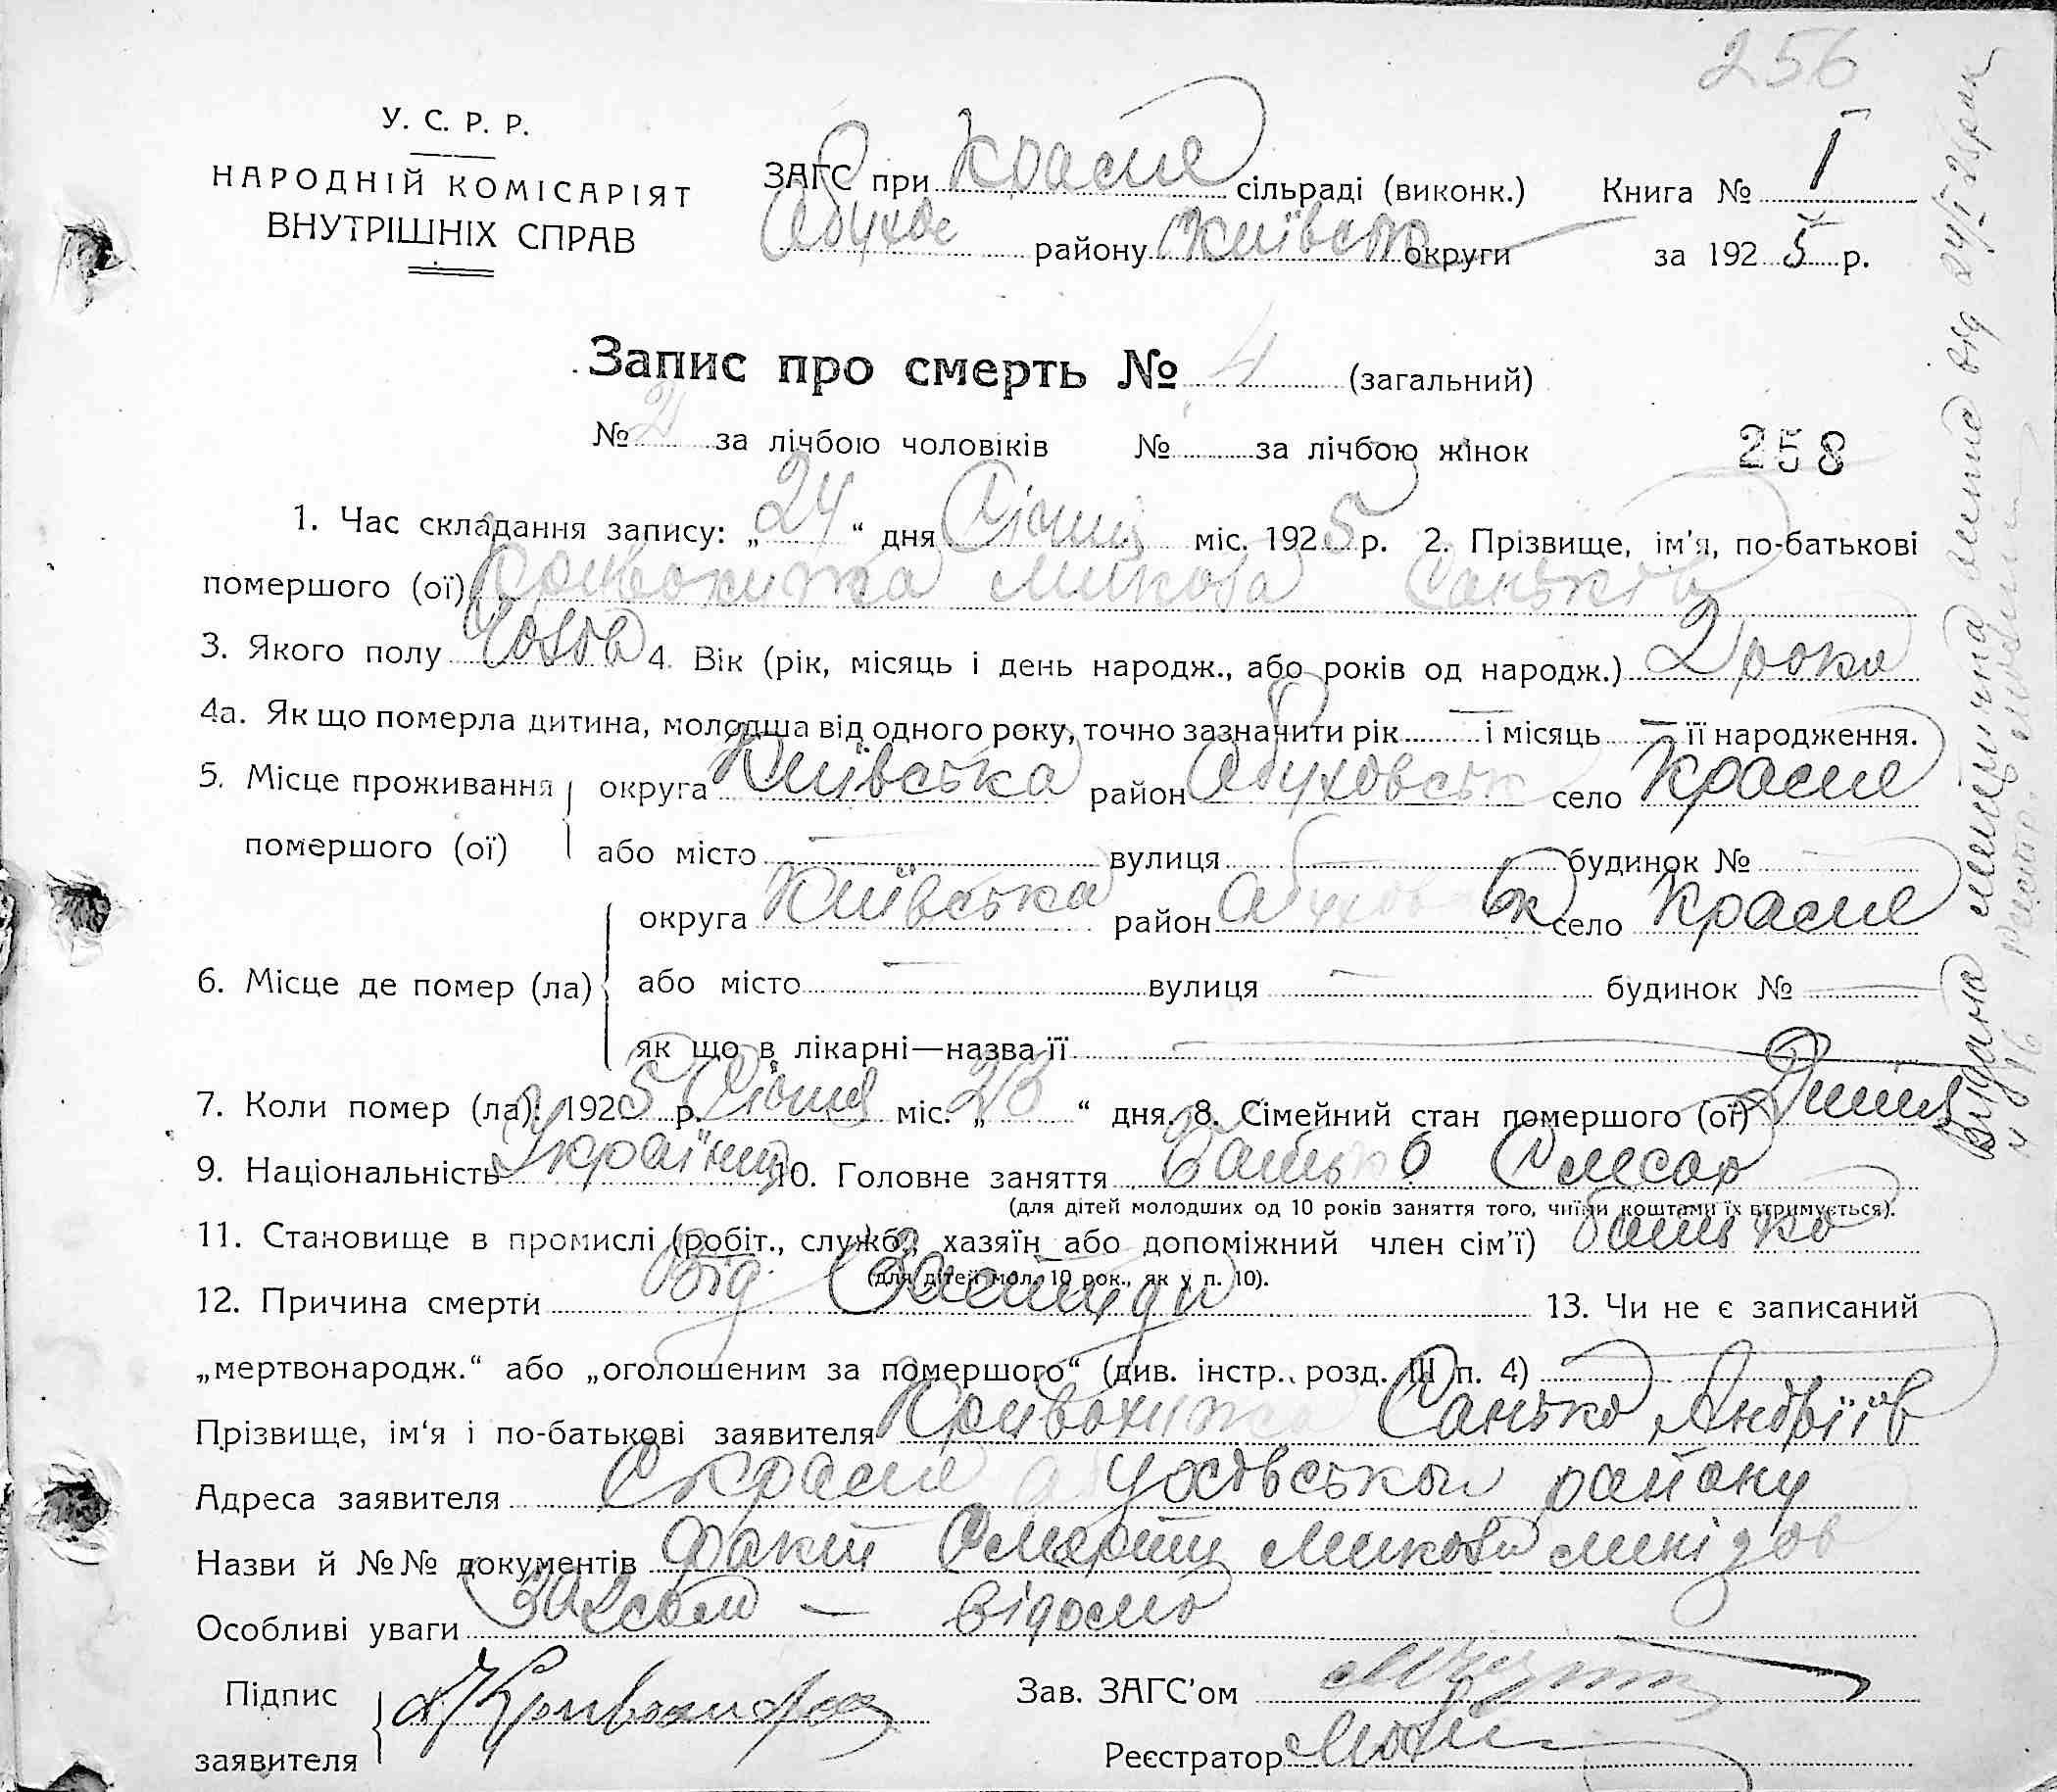 256
У. С. Р. Р.
НАРОДНІЙ КОМІСАРІЯТ
ВНУТРІШНІХ СПРАВ
ЗАГС при Красне сільраді (виконк.) Книга № I
Обухов району Київськ округи за 1925 р.
Запис про смерть № 4 (загальний)
№ 2 за лічбою чоловіків № за лічбою жінок
258
1. Час складання запису: „24“ дня Січня міс. 1925 р. 2. Прізвище, ім'я, по-батькові
помершого (ої) Кривохижа Микола Саньків
3. Якого полу Чолов 4. Вік (рік, місяць і день народж., або років од народж.) 2 роки
4а. Як що померла дитина, молодша від одного року, точно зазначити рік — і місяць — її народження.
5. Місце проживання округа Київська район Обуховськ село Красне
помершого (ої) або місто — вулиця — будинок № —
округа Київська район Обуховськ село Красне
6. Місце де помер (ла) або місто — вулиця — будинок № —
як що в лікарні—назва її —
7. Коли помер (ла): 1925 р. Січня міс. „23“ дня. 8. Сімейний стан помершого (ої)
9. Національність Українец 10. Головне заняття батько Слєсар
(для дітей молодших од 10 років заняття того, чиїми коштами їх втримується).
11. Становище в промислі (робіт., службо, хазяїн або допоміжний член сім'ї) батько
(для дітей мол. 10 рок., як у п. 10).
12. Причина смерти Від Застуди 13. Чи не є записаний
„мертвонародж.“ або „оголошеним за помершого“ (див. інстр., розд. III п. 4) —
Прізвище, ім'я і по-батькові заявителя Кривохижа Санько Андріїв
Адреса заявителя С Красне району
Назви й №№ документів факт Смерти Миколи
Особливі уваги — відомо
Підпис Зав. ЗАГС'ом
заявителя Реєстратор
Видана від 24/I 25 рок